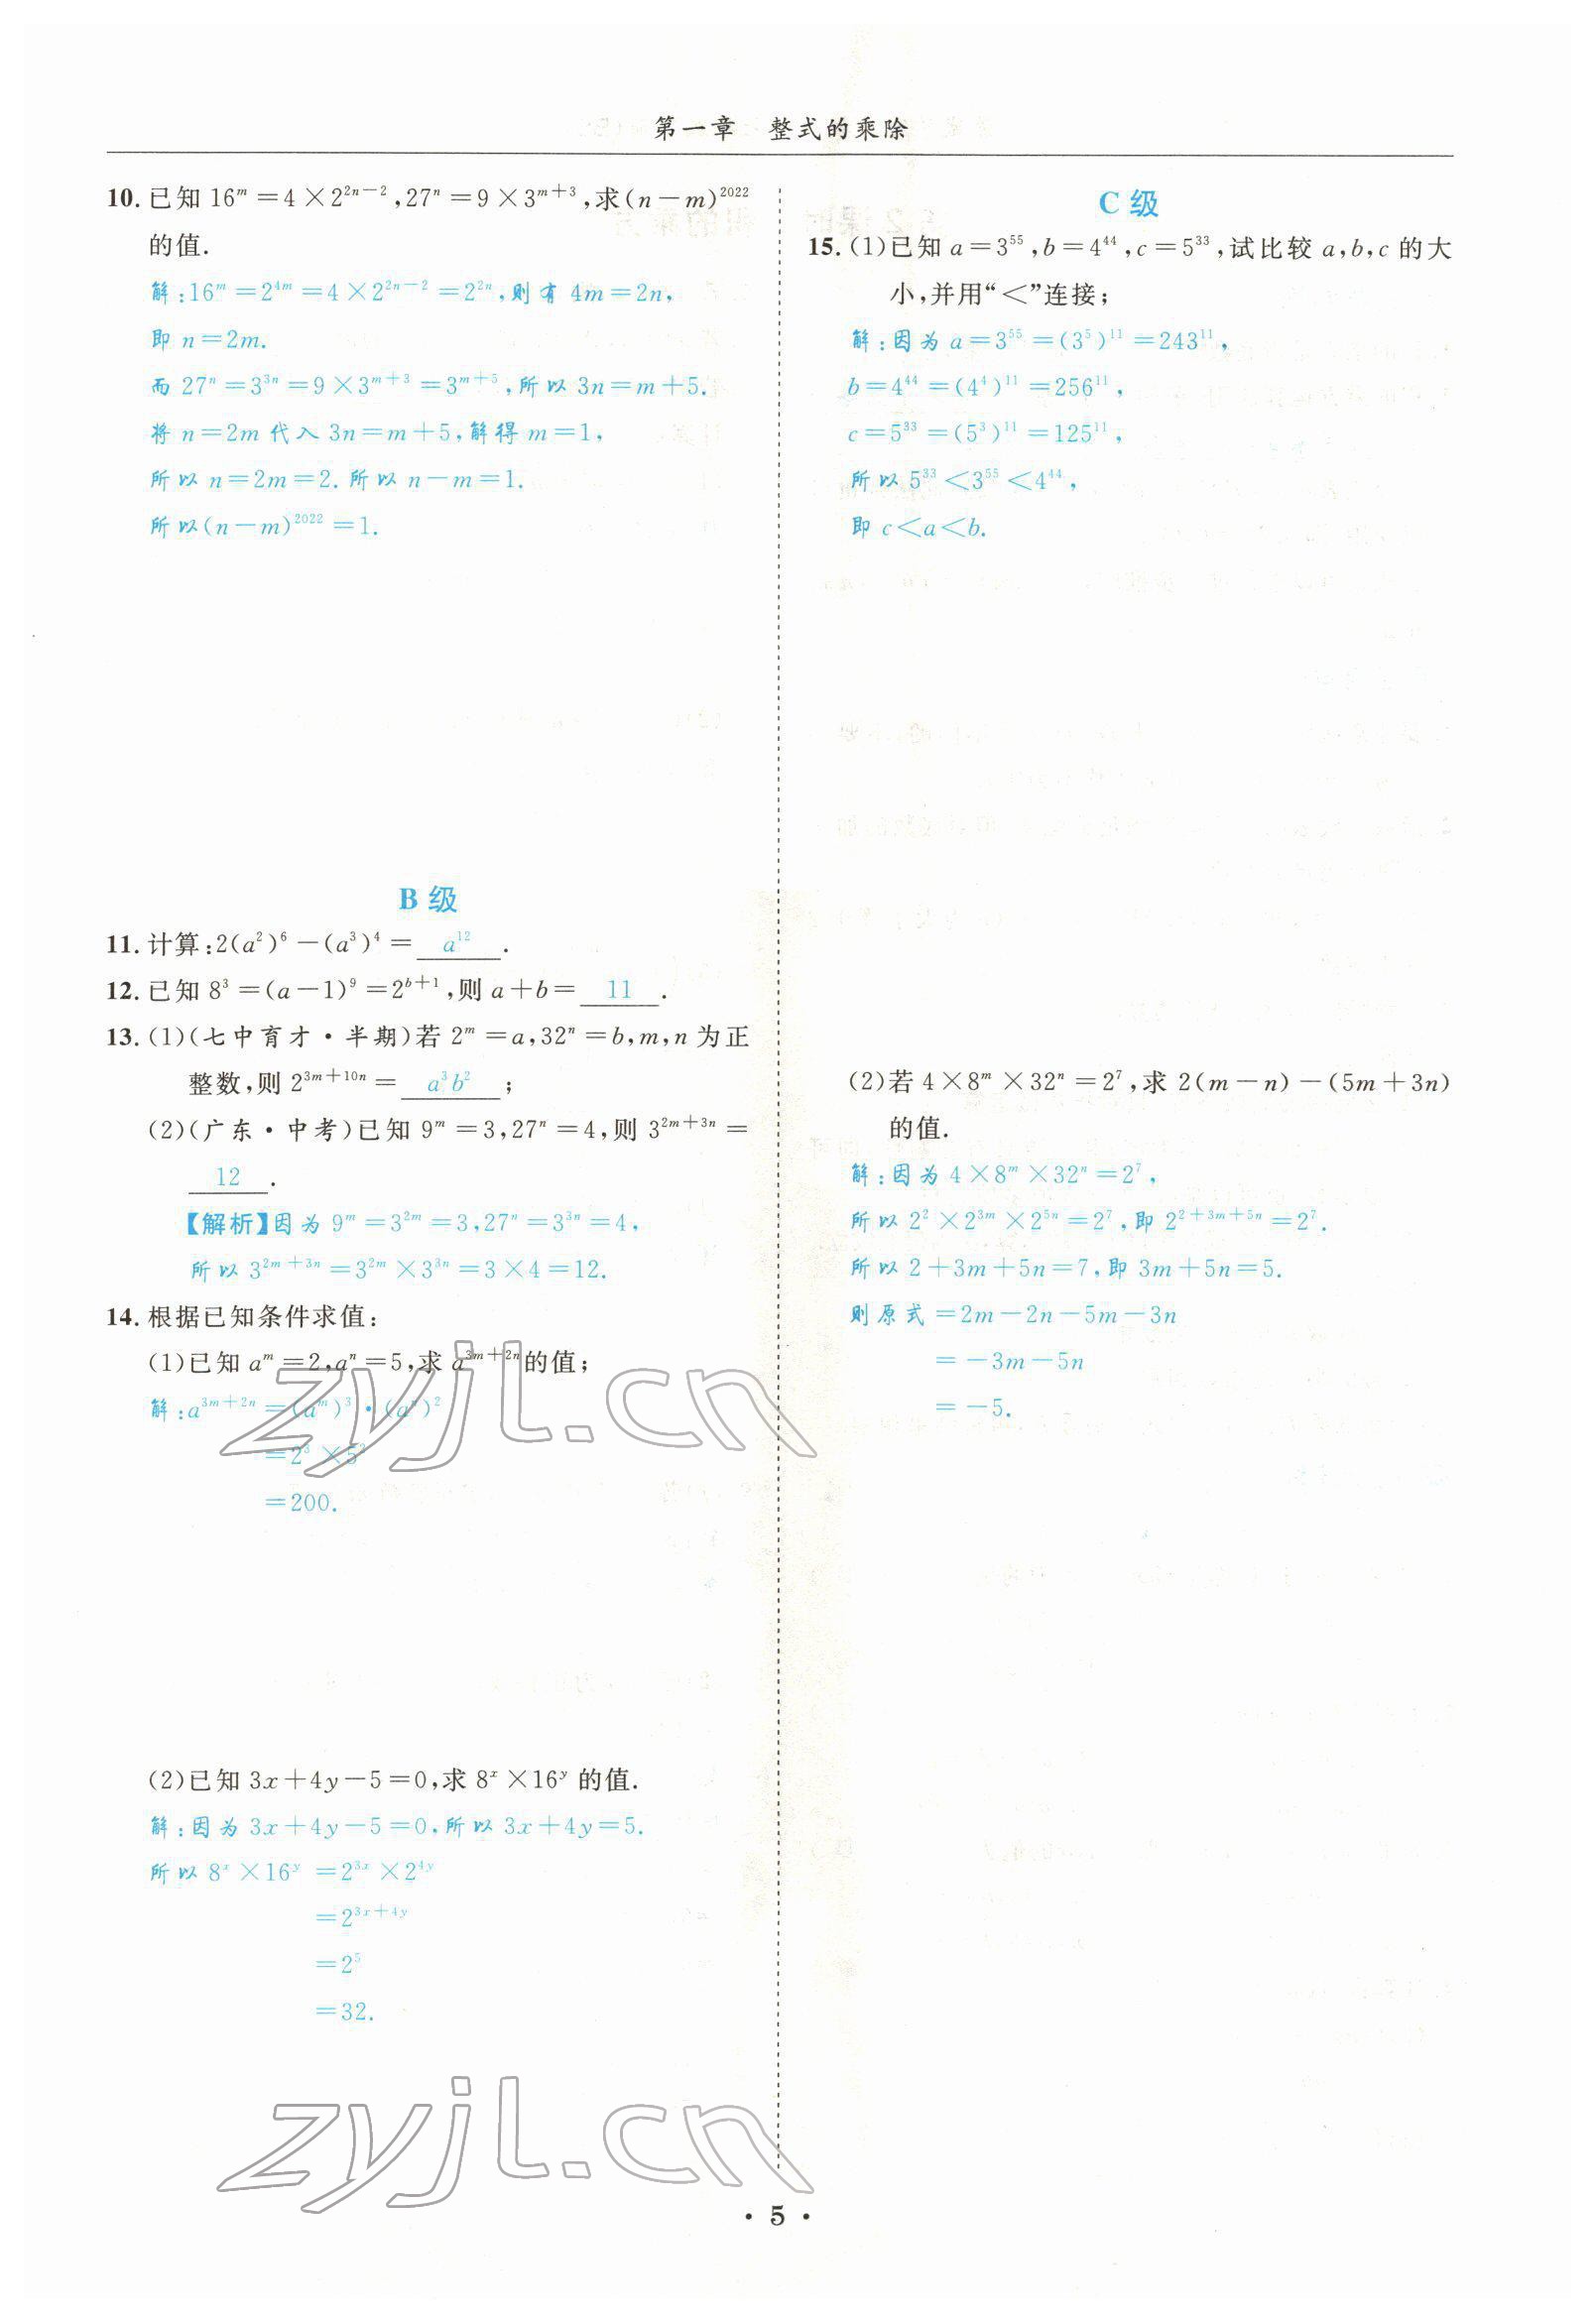 第一章 整式的乘除
10. 已知 16^m=4×2^{2n-2},27^n=9×3^{m+3},求(n-m)^{2022}
的值.
解:16^m=2^{4m}=4×2^{2n-2}=2^{2n},则有 4m=2n,
即 n=2m.
而 27^n=3^{3n}=9×3^{m+3}=3^{m+5},所以 3n=m+5.
将 n=2m 代入 3n=m+5,解得 m=1,
所以 n=2m=2. 所以 n-m=1.
所以(n-m)^{2022}=1.
B 级
11. 计算:2(a^2)^6-(a^3)^4= a^{12} .
12. 已知 8^3=(a-1)^9=2^{b+1},则 a+b= 11 .
13. (1)(七中育才·半期)若 2^m=a,32^n=b,m,n 为正
整数,则 2^{3m+10n}= a^3b^2 ;
(2)(广东·中考)已知 9^m=3,27^n=4,则 3^{2m+3n}=
12 .
【解析】因为 9^m=3^{2m}=3,27^n=3^{3n}=4,
所以 3^{2m+3n}=3^{2m}×3^{3n}=3×4=12.
14. 根据已知条件求值:
(1)已知 a^m=2,a^n=5,求 a^{3m+2n}的值;
解:a^{3m+2n}=(a^m)^3·(a^n)^2
=2^3×5^2
=200.
(2)已知 3x+4y-5=0,求 8^x×16^y 的值.
解:因为 3x+4y-5=0,所以 3x+4y=5.
所以 8^x×16^y=2^{3x}×2^{4y}
=2^{3x+4y}
=2^5
=32.
C 级
15. (1)已知 a=3^{55},b=4^{44},c=5^{33},试比较 a,b,c 的大
小,并用“<”连接;
解:因为 a=3^{55}=(3^5)^{11}=243^{11},
b=4^{44}=(4^4)^{11}=256^{11},
c=5^{33}=(5^3)^{11}=125^{11},
所以 5^{33}<3^{55}<4^{44},
即 c<a<b.
(2)若 4×8^m×32^n=2^7,求 2(m-n)-(5m+3n)
的值.
解:因为 4×8^m×32^n=2^7,
所以 2^2×2^{3m}×2^{5n}=2^7,即 2^{2+3m+5n}=2^7.
所以 2+3m+5n=7,即 3m+5n=5.
则原式=2m-2n-5m-3n
=-3m-5n
=-5.
zyjl.cn
zyjl.cn
· 5 ·